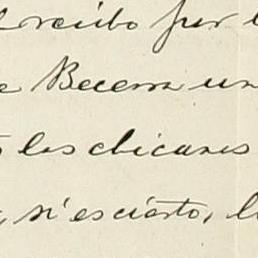 recibo por
Becerra un
los chicanos
si es cierto, l